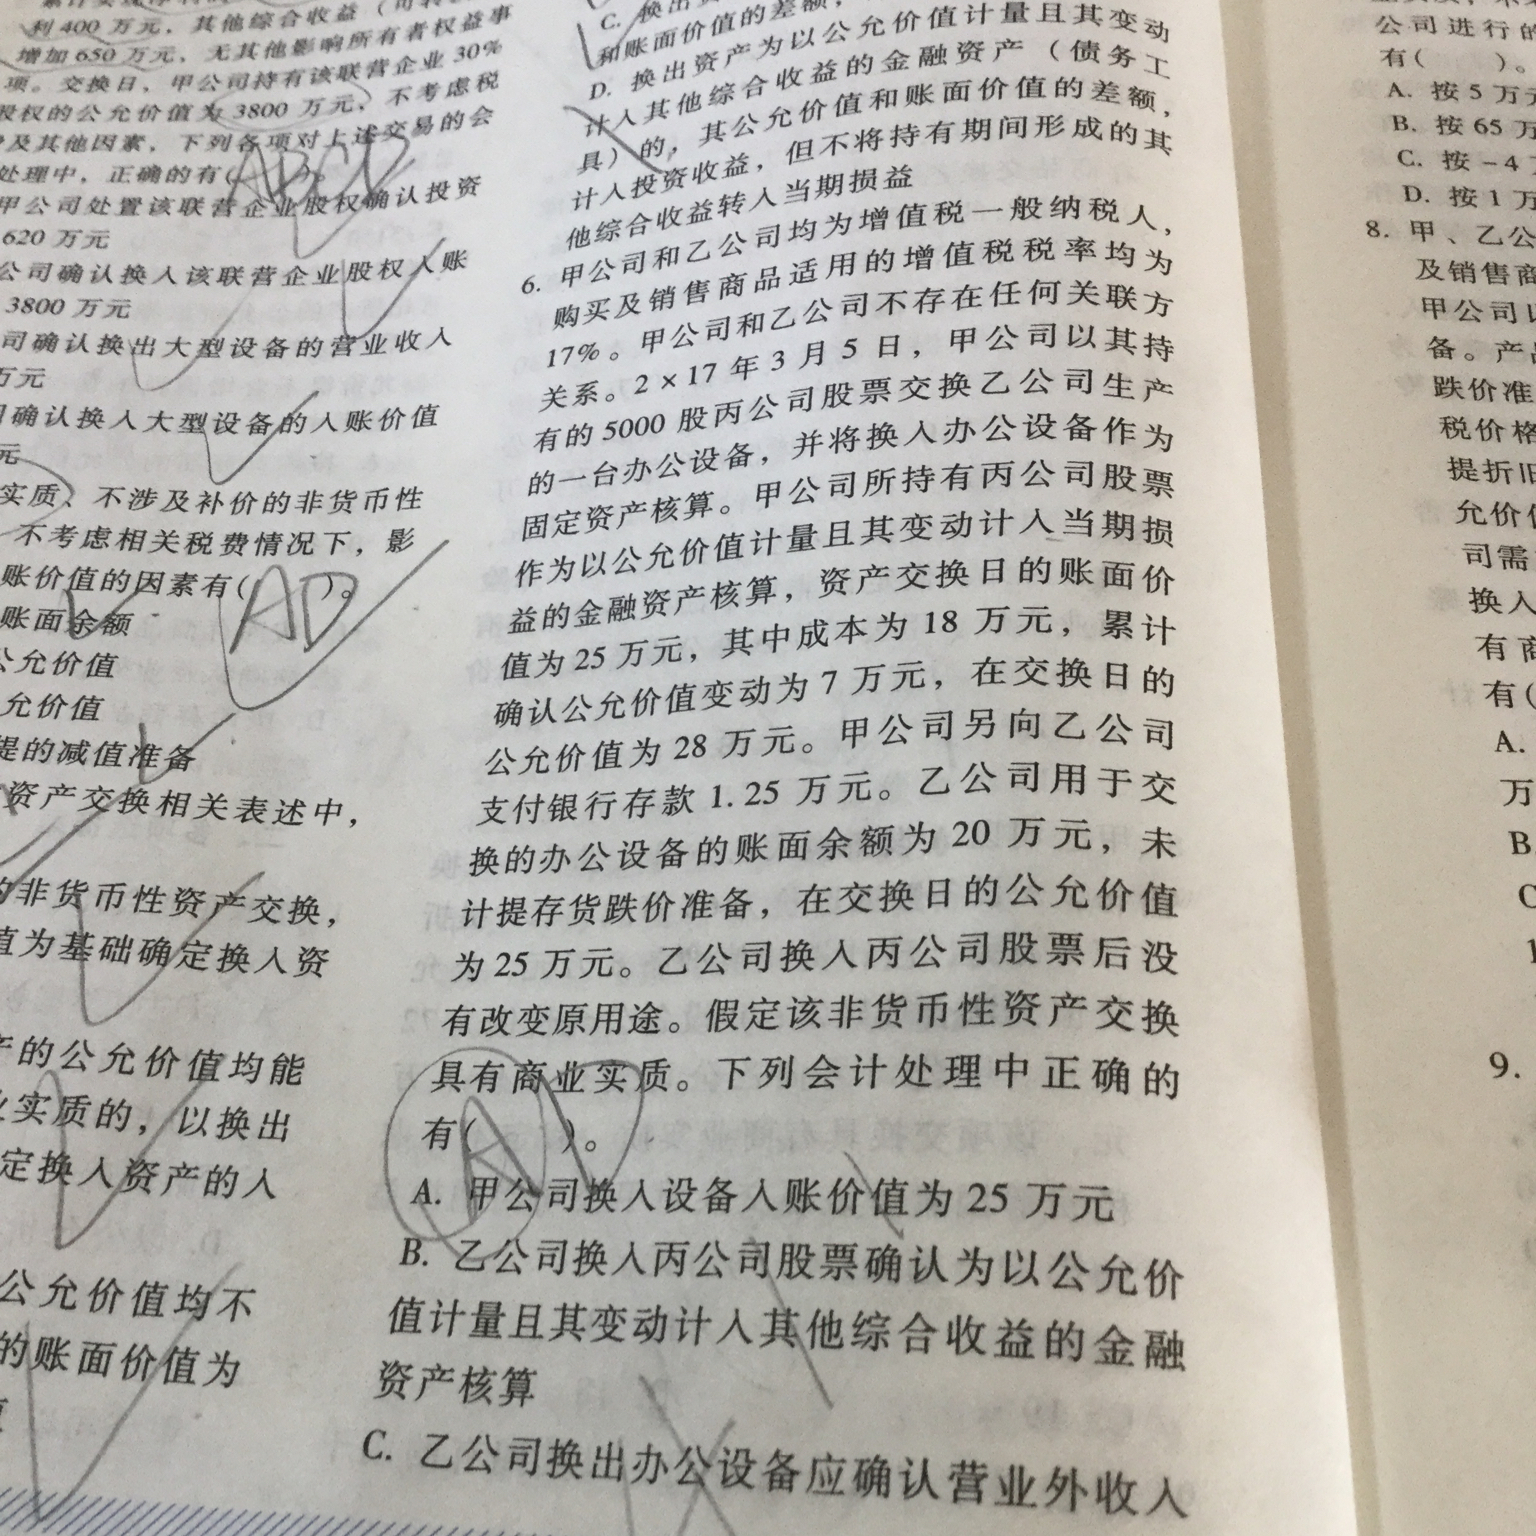 利400万元，其他综合收益（可转
增加650万元，无其他影响所有者权益事
项。交换日，甲公司持有该联营企业30%
股权的公允价值为3800万元，不考虑税
及其他因素，下列各项对上述交易的会
处理中，正确的有(ABCD)。
甲公司处置该联营企业股权确认投资
620万元
公司确认换入该联营企业股权入账
3800万元
司确认换出大型设备的营业收入
万元
确认换入大型设备的入账价值
元
实质、不涉及补价的非货币性
不考虑相关税费情况下，影
账价值的因素有(AD)。
账面余额
公允价值
允价值
提的减值准备
资产交换相关表述中，
的非货币性资产交换，
值为基础确定换入资
产的公允价值均能
业实质的，以换出
定换入资产的入
公允价值均不
的账面价值为
C. 换出
和账面价值的差额，
D. 换出资产为以公允价值计量且其变动
计入其他综合收益的金融资产（债务工
具）的，其公允价值和账面价值的差额，
计入投资收益，但不将持有期间形成的其
他综合收益转入当期损益
6. 甲公司和乙公司均为增值税一般纳税人，
购买及销售商品适用的增值税税率均为
17%。甲公司和乙公司不存在任何关联方
关系。2×17年3月5日，甲公司以其持
有的5000股丙公司股票交换乙公司生产
的一台办公设备，并将换入办公设备作为
固定资产核算。甲公司所持有丙公司股票
作为以公允价值计量且其变动计入当期损
益的金融资产核算，资产交换日的账面价
值为25万元，其中成本为18万元，累计
确认公允价值变动为7万元，在交换日的
公允价值为28万元。甲公司另向乙公司
支付银行存款1.25万元。乙公司用于交
换的办公设备的账面余额为20万元，未
计提存货跌价准备，在交换日的公允价值
为25万元。乙公司换入丙公司股票后没
有改变原用途。假定该非货币性资产交换
具有商业实质。下列会计处理中正确的
有(    )。
A. 甲公司换入设备入账价值为25万元
B. 乙公司换入丙公司股票确认为以公允价
值计量且其变动计入其他综合收益的金融
资产核算
C. 乙公司换出办公设备应确认营业外收入
公司进行的
有(    )。
A. 按5万元
B. 按65万
C. 按-4
D. 按1万
8. 甲、乙公
及销售商
甲公司以
备。产品
跌价准
税价格
提折旧
允价值
司需
换入
有商
有(
A.
万
B.
C
1
9.